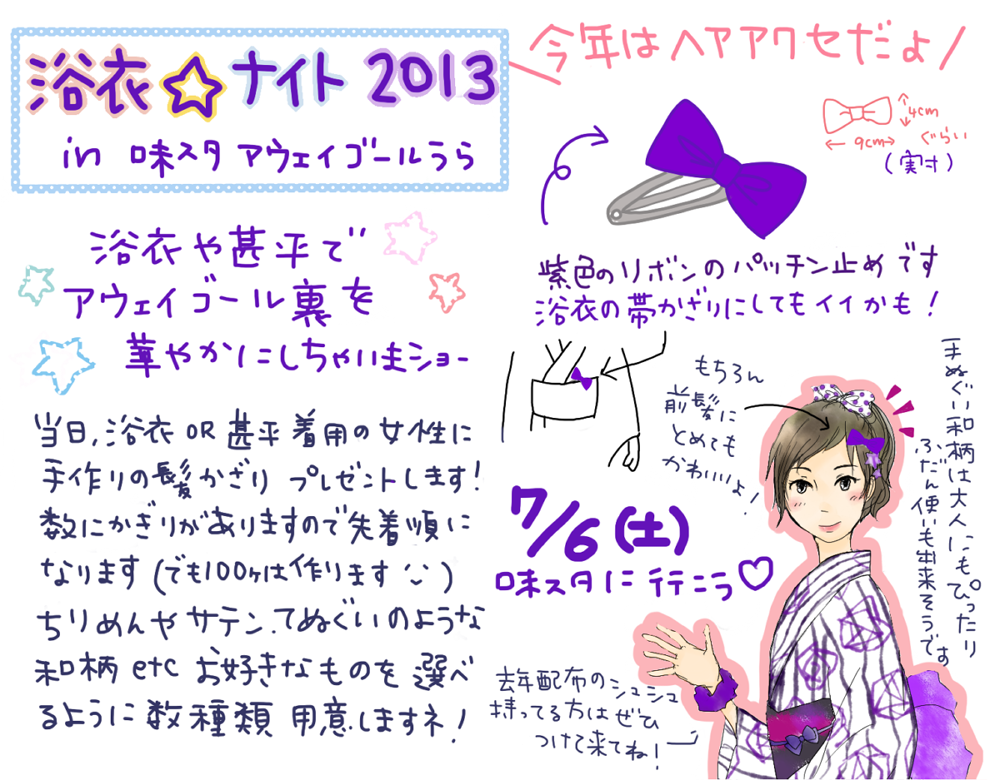 浴衣☆ナイト 2013
in 味スタ アウェイゴールうら
今年はヘアアクセだよ/
4cm
9cm
ぐらい
(実寸)
浴衣や甚平で
アウェイゴール裏を
華やかにしちゃいまショー
紫色のリボンのパッチン止めです
浴衣の帯かざりにしてもイイかも!
もちろん
前髪に
とめても
かわいいよ!
手ぬぐい和柄は大人にもぴったり
ふだん使いも出来そうです
当日、浴衣OR甚平着用の女性に
手作りの髪かざり プレゼントします!
数にかぎりがありますので先着順に
なります(でも100ヶは作ります)
ちりめんやサテン、てぬぐいのような
和柄etc お好きなものを選べ
るように数種類 用意しますネ!
7/6(土)
味スタに行こう♡
去年配布のシュシュ
持ってる方はぜひ
つけて来てね!